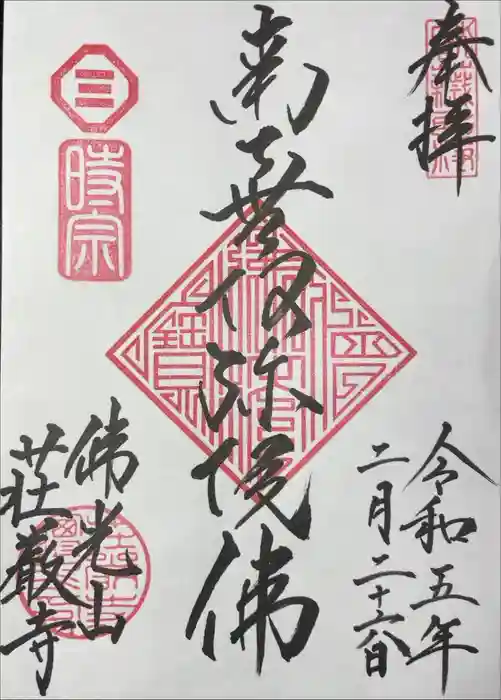 奉拝
令和五年
二月二十六日
南無阿弥陀佛
三
時宗
佛光山
荘厳寺